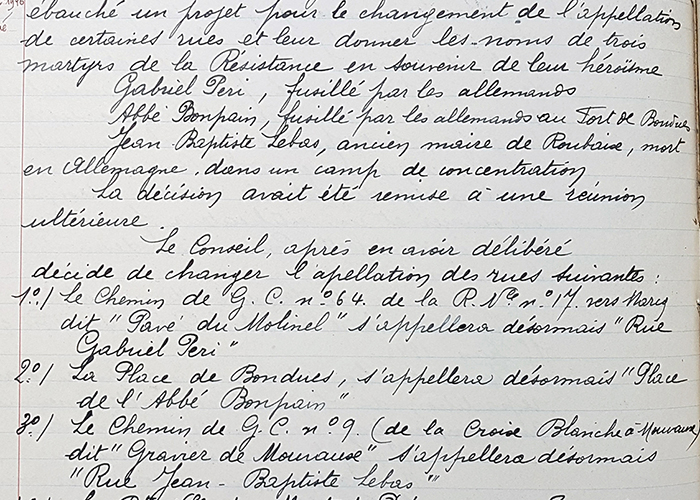 1946
ébauché un projet pour le changement de l'appellation
de certaines rues et leur donner les noms de trois
martyrs de la Résistance en souvenir de leur héroïsme
Gabriel Peri, fusillé par les allemands
Abbé Bonpain, fusillé par les allemands au Fort de Bondues
Jean Baptiste Lebas, ancien maire de Roubaix, mort
en Allemagne, dans un camp de concentration
La décision avait été remise à une réunion
ultérieure.
Le Conseil, après en avoir délibéré
décide de changer l'apellation des rues suivantes :
1º/ Le Chemin de G.C. nº 64. de la R. Nle nº 17. vers Marcq
dit "Pavé du Molinel" s'appellera désormais "Rue
Gabriel Peri"
2º/ La Place de Bondues, s'appellera désormais "Place
de l'Abbé Bonpain"
3º/ Le Chemin de G.C. nº 9. (de la Croix Blanche à Mouvaux)
dit "Gravier de Mouvaux" s'appellera désormais
"Rue Jean-Baptiste Lebas"